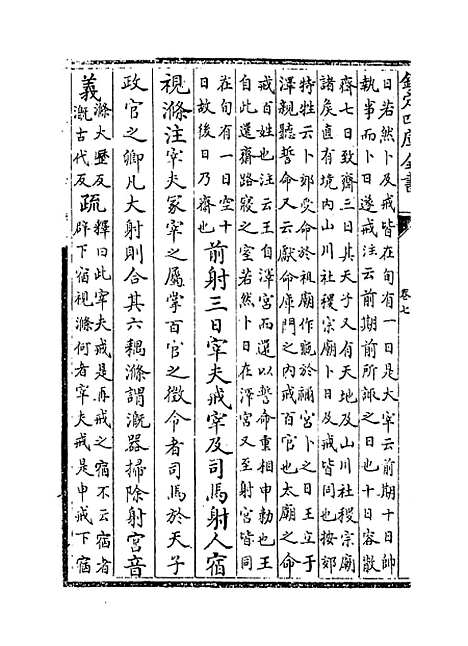 欽定四庫全書
卷七
日若然卜及戒皆在旬有一日是大宰云前期十日帥
執事而卜日遂戒注云前期前所諏之日也十日容散
齊七日致齊三日其天子又有天地及山川社稷宗廟
諸矦直有境內山川社稷宗廟卜日及戒皆同也按郊
特牲云卜郊受命於祖廟作龜於禰宮卜之日王立于
澤親聽誓命又云獻命庫門之內戒百官也太廟之命
戒百姓也注云王自澤宮而還以誓命重相申勅也王
自此還齋路寢之室若然卜日在澤宮又至射宮皆同
在旬有一日空十
日故後日乃齋也
前射三日宰夫戒宰及司馬射人宿
視滌注宰夫冢宰之屬掌百官之徵令者司馬於天子
政官之卿凡大射則合其六耦滌謂溉器掃除射宮音
義
滌大歷反
溉古代反
疏
釋曰此宰夫戒是再戒之宿不云宿者
辟下宿視滌何者宰夫戒是申戒下宿